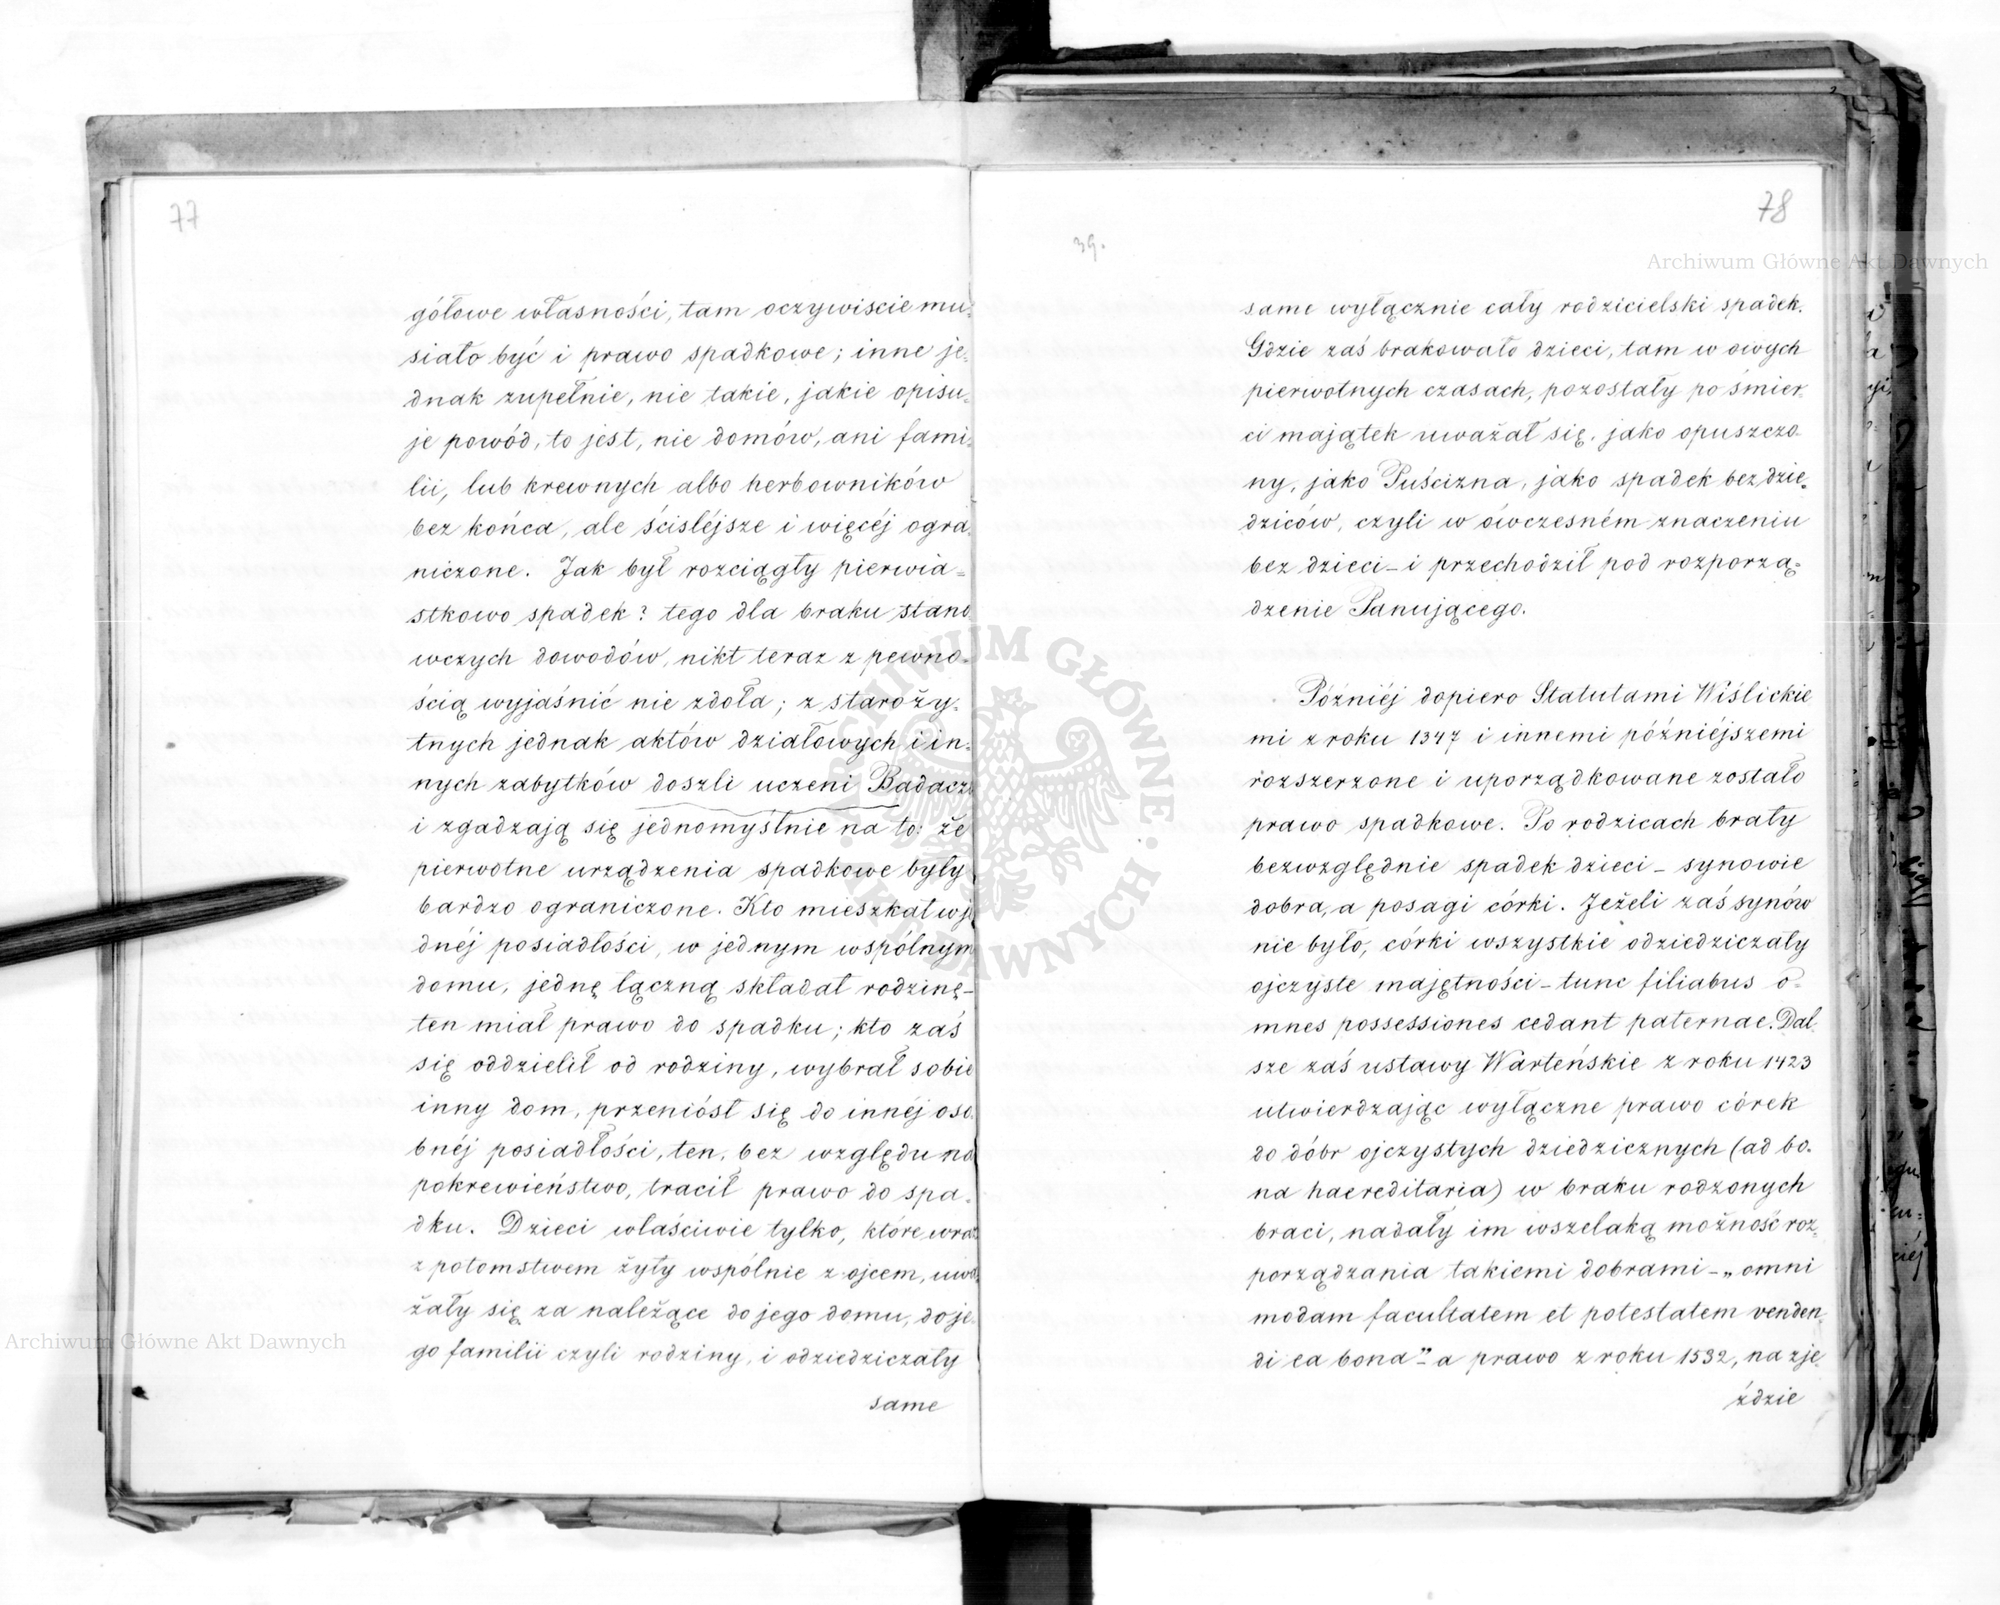 77
gółowe własności, tam oczywiscie mu-
siało być i prawo spadkowe; inne je-
dnak zupełnie, nie takie, jakie opisu-
je powód, to jest, nie domów, ani fami-
lii, lub krewnych albo herbowników
bez końca, ale ściśléjsze i więcéj ogra-
niczone. Jak był rozciągły pierwia-
stkowo spadek? tego dla braku stano-
wczych dowodów, nikt teraz z pewno-
ścią wyjaśnić nie zdoła; z staroży-
tnych jednak aktów działowych i in-
nych zabytków doszli uczeni Badacze
i zgadzają się jednomyślnie na to: że
pierwotne urządzenia spadkowe były
bardzo ograniczone. Kto mieszkał w je
dnéj posiadłości, w jednym wspólnym
domu, jednę łączną składał rodzinę-
ten miał prawo do spadku; kto zaś
się oddzielił od rodziny, wybrał sobie
inny dom, przeniósł się do innéj oso
bnéj posiadłości, ten, bez względu na
pokrewieństwo, tracił prawo do spa-
dku. Dzieci właściwie tylko, które wraz
z potomstwem żyły wspólnie z ojcem, uwa
żały się za należące do jego domu, do je-
go familii czyli rodziny, i odziedziczały
same
78
39.
same wyłącznie cały rodzicielski spadek.
Gdzie zaś brakowało dzieci, tam w owych
pierwotnych czasach, pozostały po śmier-
ci majątek uważał się, jako opuszczo-
ny, jako Puścizna, jako spadek bez dzie-
dziców, czyli w ówczesném znaczeniu
bez dzieci - i przechodził pod rozporzą-
dzenie Panującego.
Późniéj dopiero Statutami Wiślickie
mi z roku 1347 i innemi późniéjszemi
rozszerzone i uporządkowane zostało
prawo spadkowe. Po rodzicach brały
bezwzględnie spadek dzieci - synowie
dobra, a posagi córki. Jeżeli zaś synów
nie było, córki wszystkie odziedziczały
ojczyste majętności - tunc filiabus o-
mnes possessiones cedant paternae. Dal-
sze zaś ustawy Warteńskie z roku 1423
utwierdzając wyłączne prawo córek
do dóbr ojczystych dziedzicznych (ad bo-
na haereditaria) w braku rodzonych
braci, nadały im wszelaką możność roz-
porządzania takiemi dobrami - „omni
modam facultatem et potestatem venden-
di ea bona" - a prawo z roku 1532, na zje
ździe
Archiwum Główne Akt Dawnych
Archiwum Główne Akt Dawnych
ARCHIWUM GŁÓWNE AKT DAWNYCH